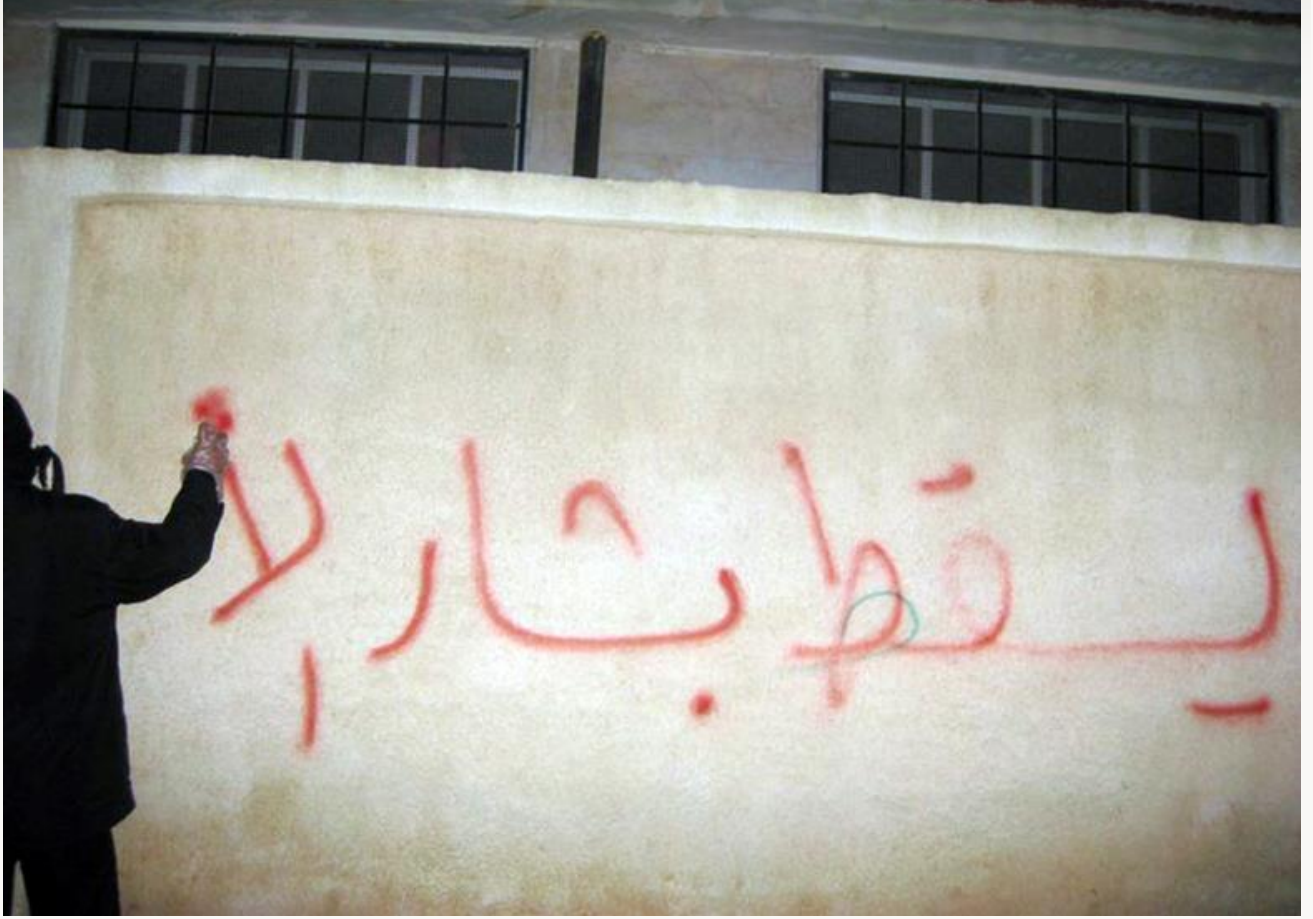 يسقط بشار لأ